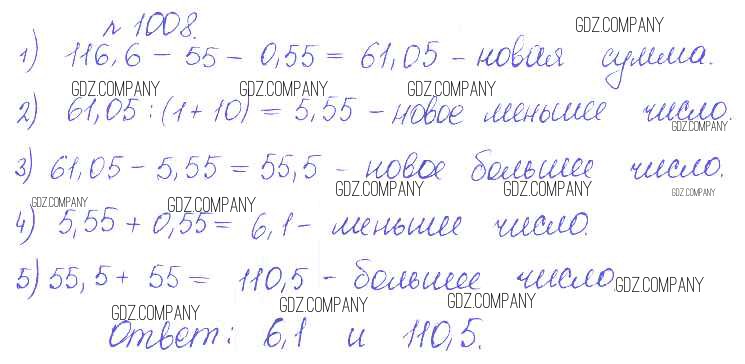 № 1008.
GDZ.COMPANY
1) 116,6 - 55 - 0,55 = 61,05 - новая сумма.
GDZ.COMPANY GDZ.COMPANY GDZ.COMPANY
2) 61,05 : (1 + 10) = 5,55 - новое меньшее число.
GDZ.COMPANY
3) 61,05 - 5,55 = 55,5 - новое большее число.
GDZ.COMPANY GDZ.COMPANY GDZ.COMPANY
GDZ.COMPANY GDZ.COMPANY
4) 5,55 + 0,55 = 6,1 - меньшее число.
5) 55,5 + 55 = 110,5 - большее число.
GDZ.COMPANY
GDZ.COMPANY GDZ.COMPANY GDZ.COMPANY
Ответ: 6,1 и 110,5.